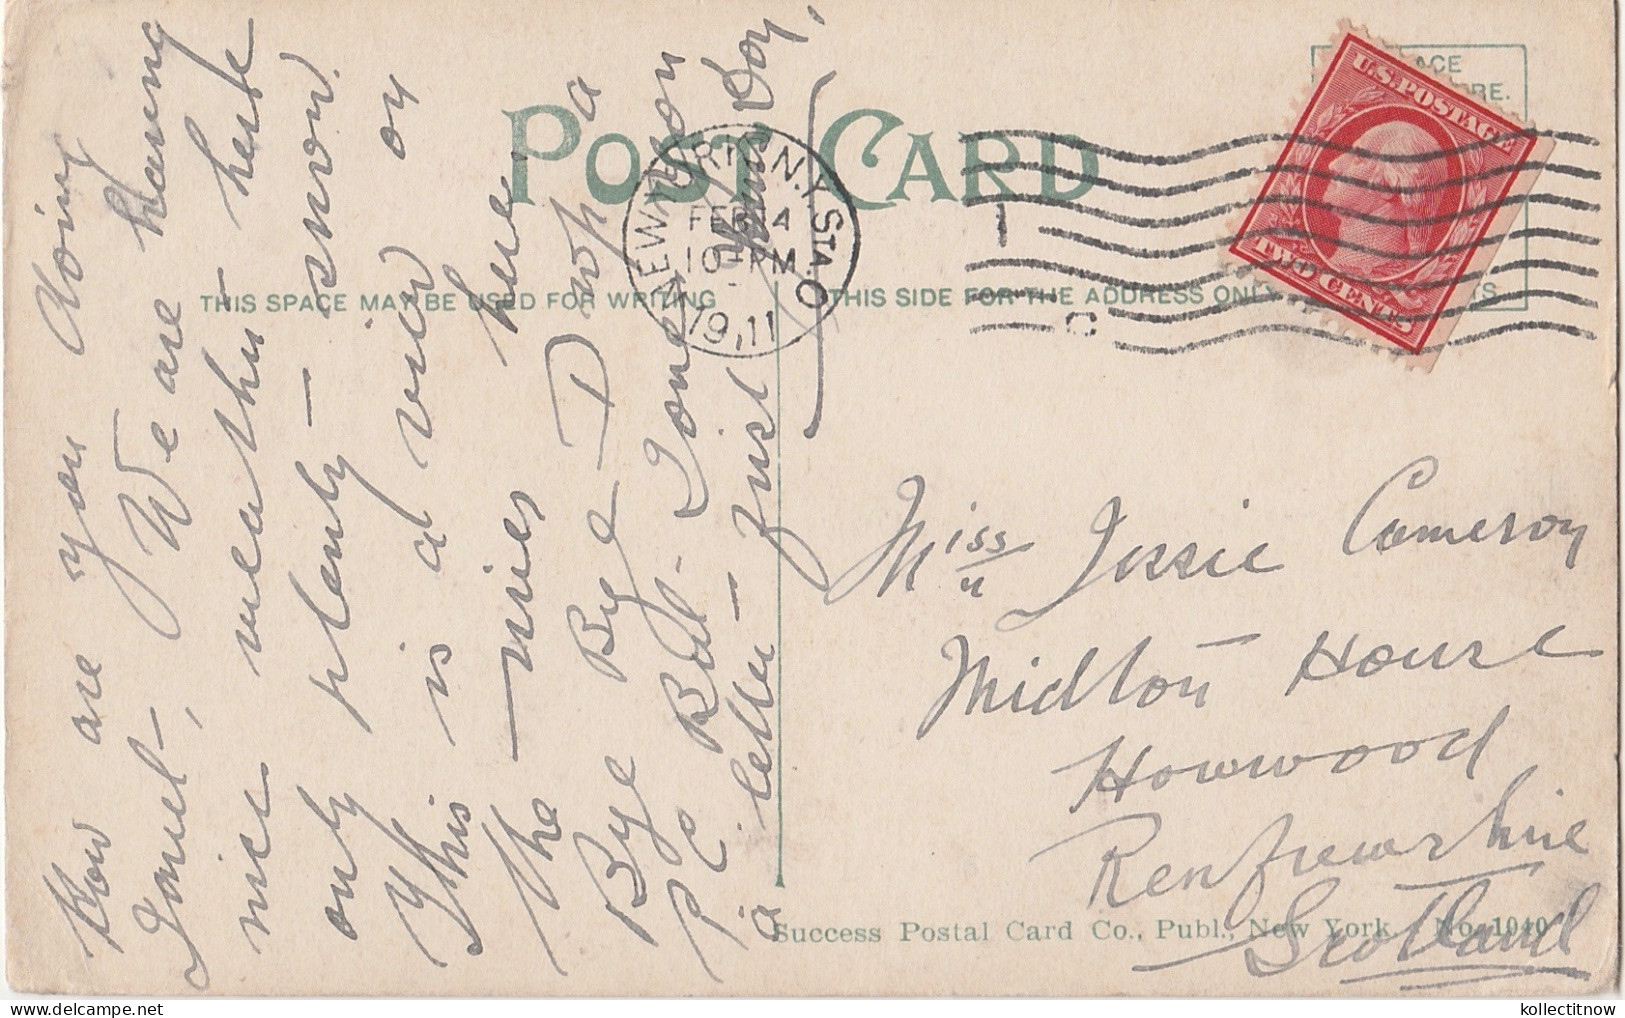 POST CARD
PLACE
HERE.
THIS SPACE MAY BE USED FOR WRITING
THIS SIDE FOR THE ADDRESS ONLY
NEW YORK, N.Y. STA. O
FEB 14
10-PM
1911
1
C
U.S. POSTAGE
TWO CENTS
How are you doing
Janet, We are having
nice weather here
only plenty snow.
This is a view on
the river here
Bye Bye Drop a
P C But
a letter just
Yours
Miss Jessie Cameron
Midton House
Howwood
Renfrewshire
Scotland
Success Postal Card Co., Publ., New York. No. 1040
kollectitnow